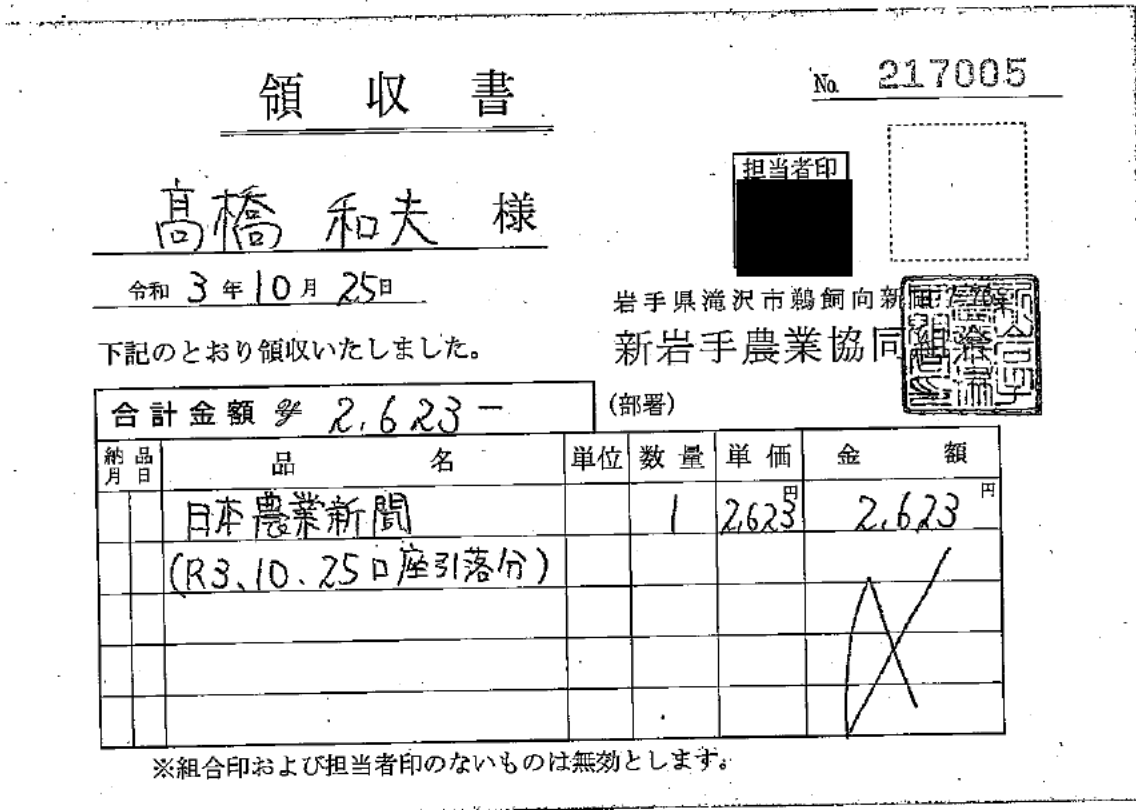 領収書
No. 217005
担当者印
髙橋 和夫 様
令和 3 年 10 月 25日
岩手県滝沢市鵜飼向新田
新岩手農業協同組合
下記のとおり領収いたしました。
合計金額 ¥ 2,623-
(部署)
納品月日 品名 単位 数量 単価 金額
日本農業新聞 1 2,623円 2,623円
(R3.10.25口座引落分)
※組合印および担当者印のないものは無効とします。